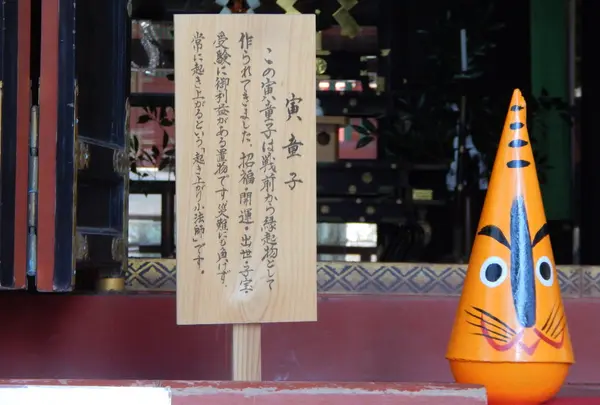 寅童子
この寅童子は戦前から縁起物として
作られてきました。招福・開運・出世・子宝・
受験に御利益がある置物です。災難にも負けず、
常に起き上がるという「起き上がり小法師」です。